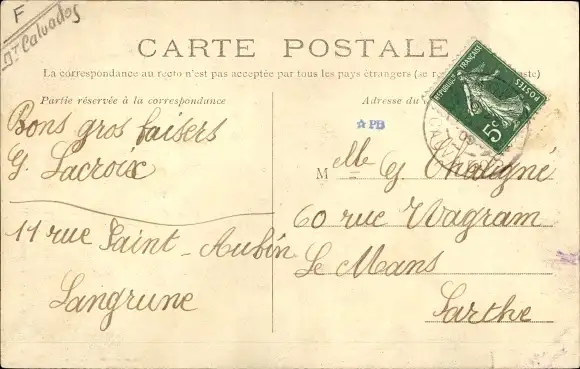 F
Dt Calvados
CARTE POSTALE
La correspondance au recto n'est pas acceptée par tous les pays étrangers (se re
Partie réservée à la correspondance
Adresse du
REPUBLIQUE FRANÇAISE
POSTES
5c
PB
Bons gros baisers
G. Lacroix
11 rue Saint-Aubin
Langrune
Mlle G Chaligné
60 rue Wagram
Le Mans
Sarthe